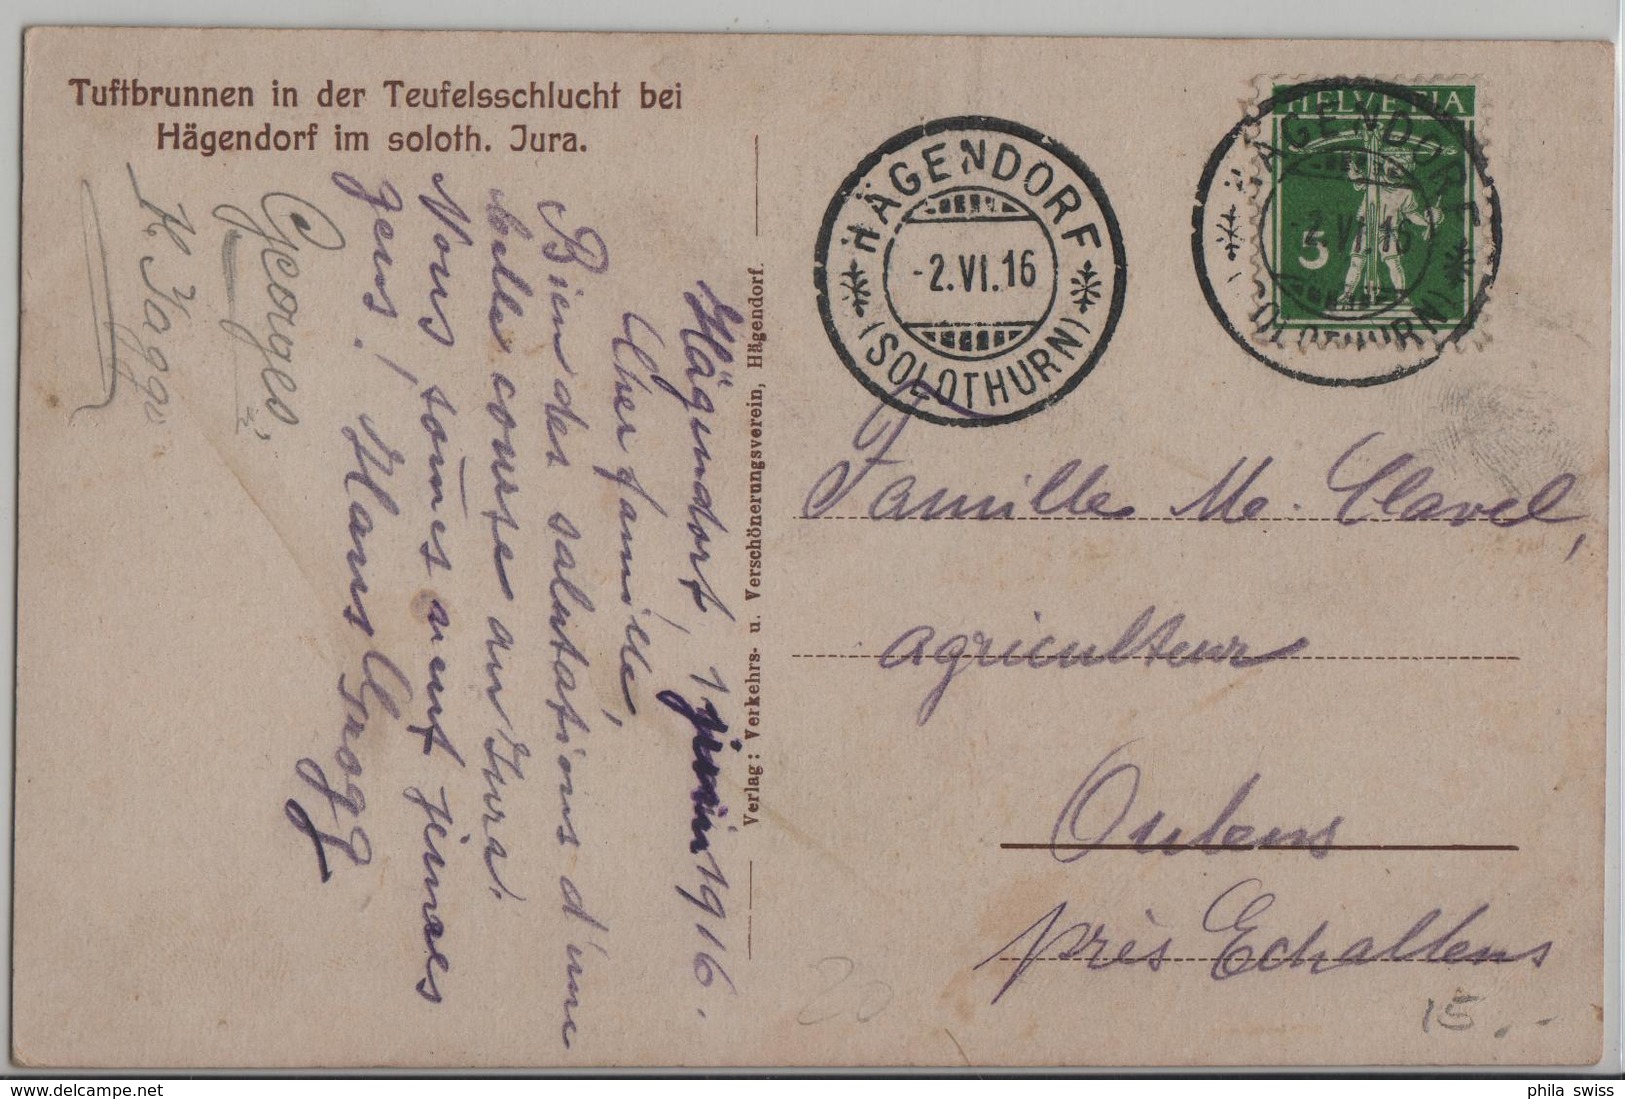 Tuftbrunnen in der Teufelsschlucht bei
Hägendorf im soloth. Jura.
Hägendorf, 1 juin 1916.
Cher famille,
Bien des salutations d'une
belle course au Jura.
Nous som̄es neuf jeunes
gens! Hans Grogg
Georges
H. Jäggi
Verlag: Verkehrs- u. Verschönerungsverein, Hägendorf.
HÄGENDORF
-2.VI.16
(SOLOTHURN)
HELVETIA
5
HÄGENDORF
-2.VI.16
(SOLOTHURN)
Famille Me. Clavel,
agriculteur
Oulens
près Echallens
20
15.-
phila swiss